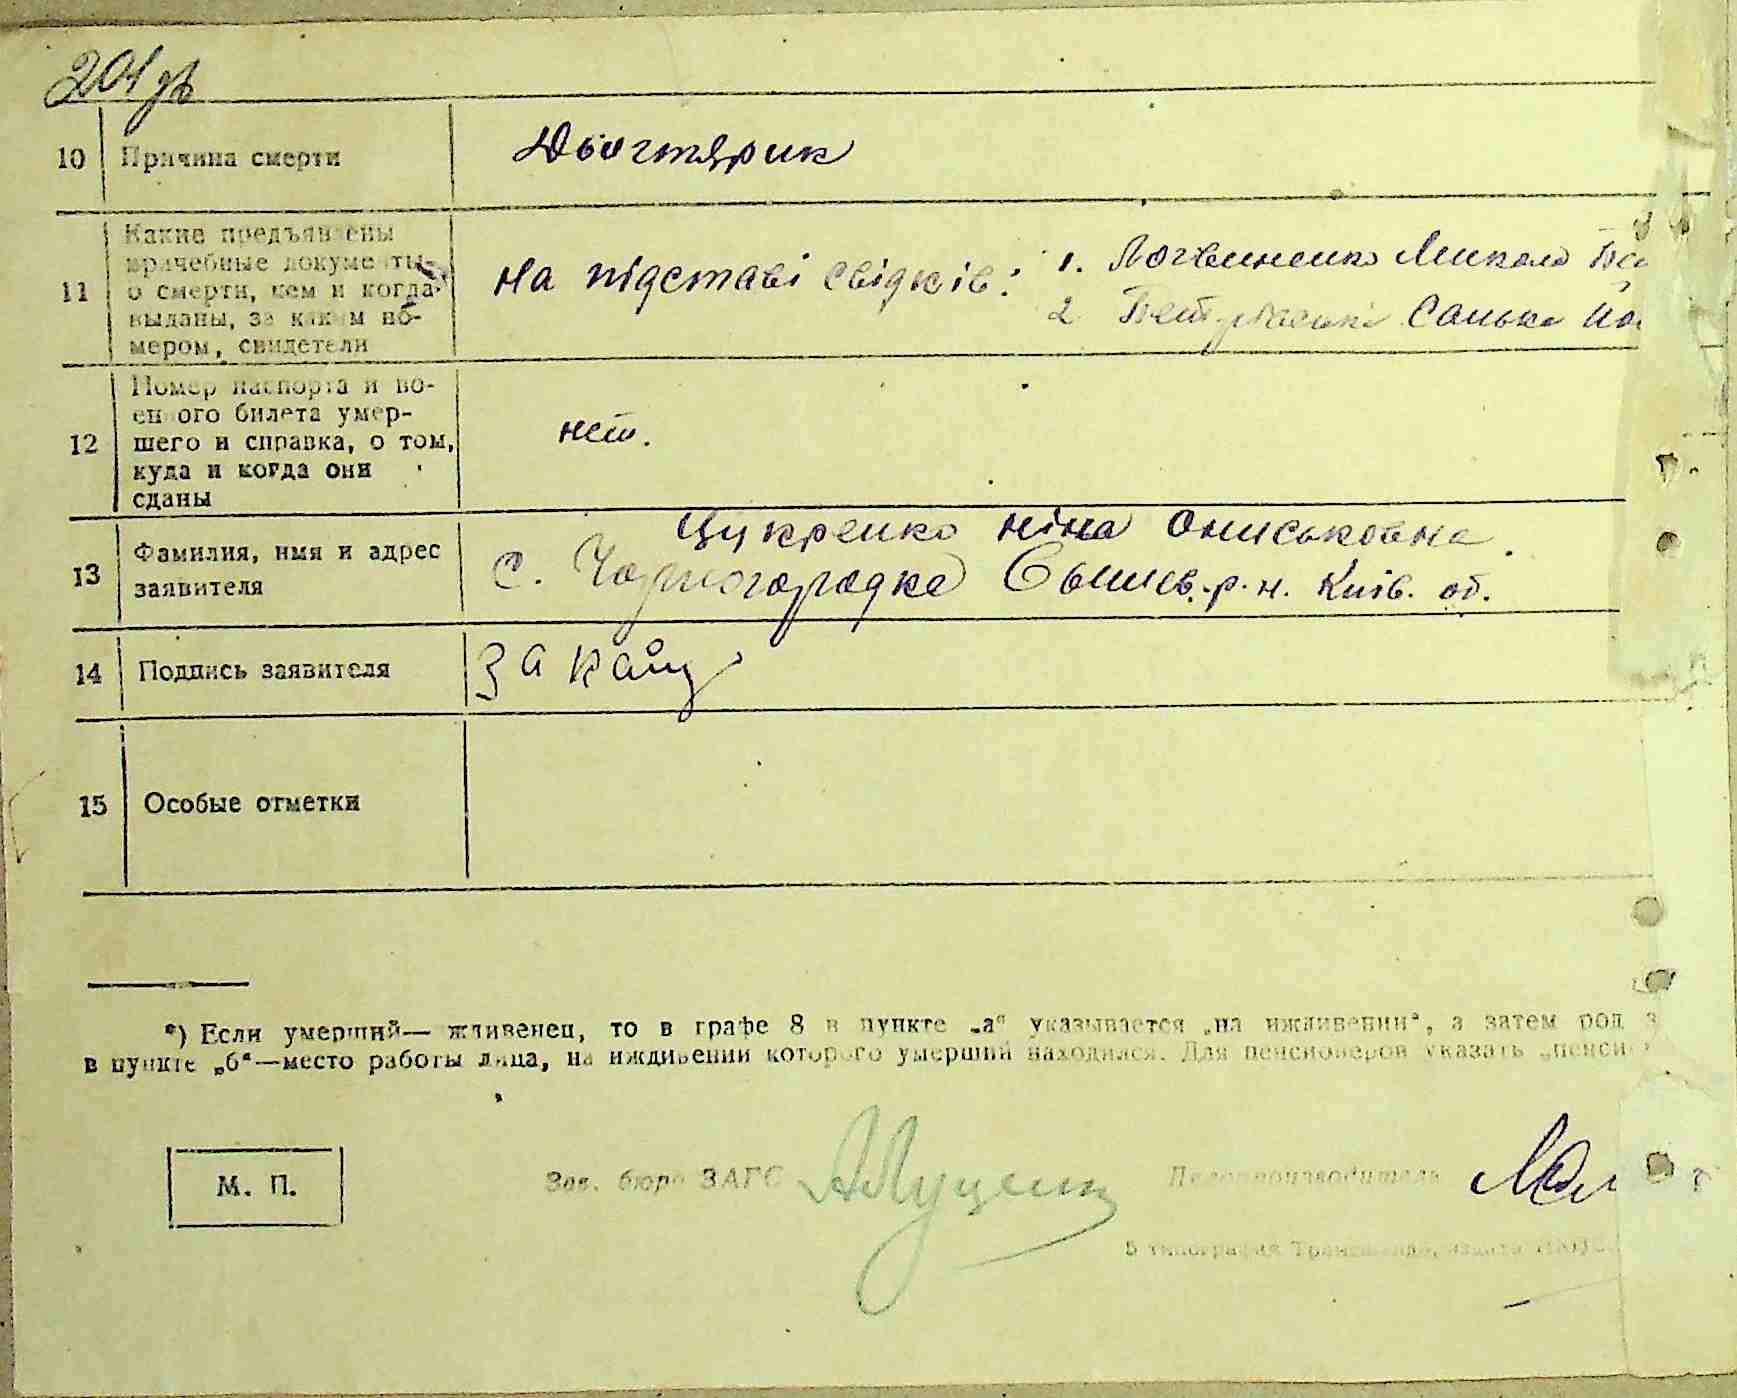 201
10 Причина смерти
11 Какие предъявлены
врачебные документы
о смерти, кем и когда
выданы, за каким но-
мером, свидетели
На підставі свідків: 1. Логвиненко Микола
2 Санька
12 Номер паспорта и во-
енного билета умер-
шего и справка, о том,
куда и когда они
сданы
нет.
13 Фамилия, имя и адрес
заявителя
Цукренко Ніна Ониськовна
с. Чорногородка р-н. Київ. об.
14 Подпись заявителя
15 Особые отметки
*) Если умерший— иждивенец, то в графе 8 в пункте „а“ указывается „на иждивении“, а затем род
в пункте „б“—место работы лица, на иждивении которого умерший находился. Для пенсионеров указать „пенси
М. П.
Зав. бюро ЗАГС
Делопроизводитель
5 типография